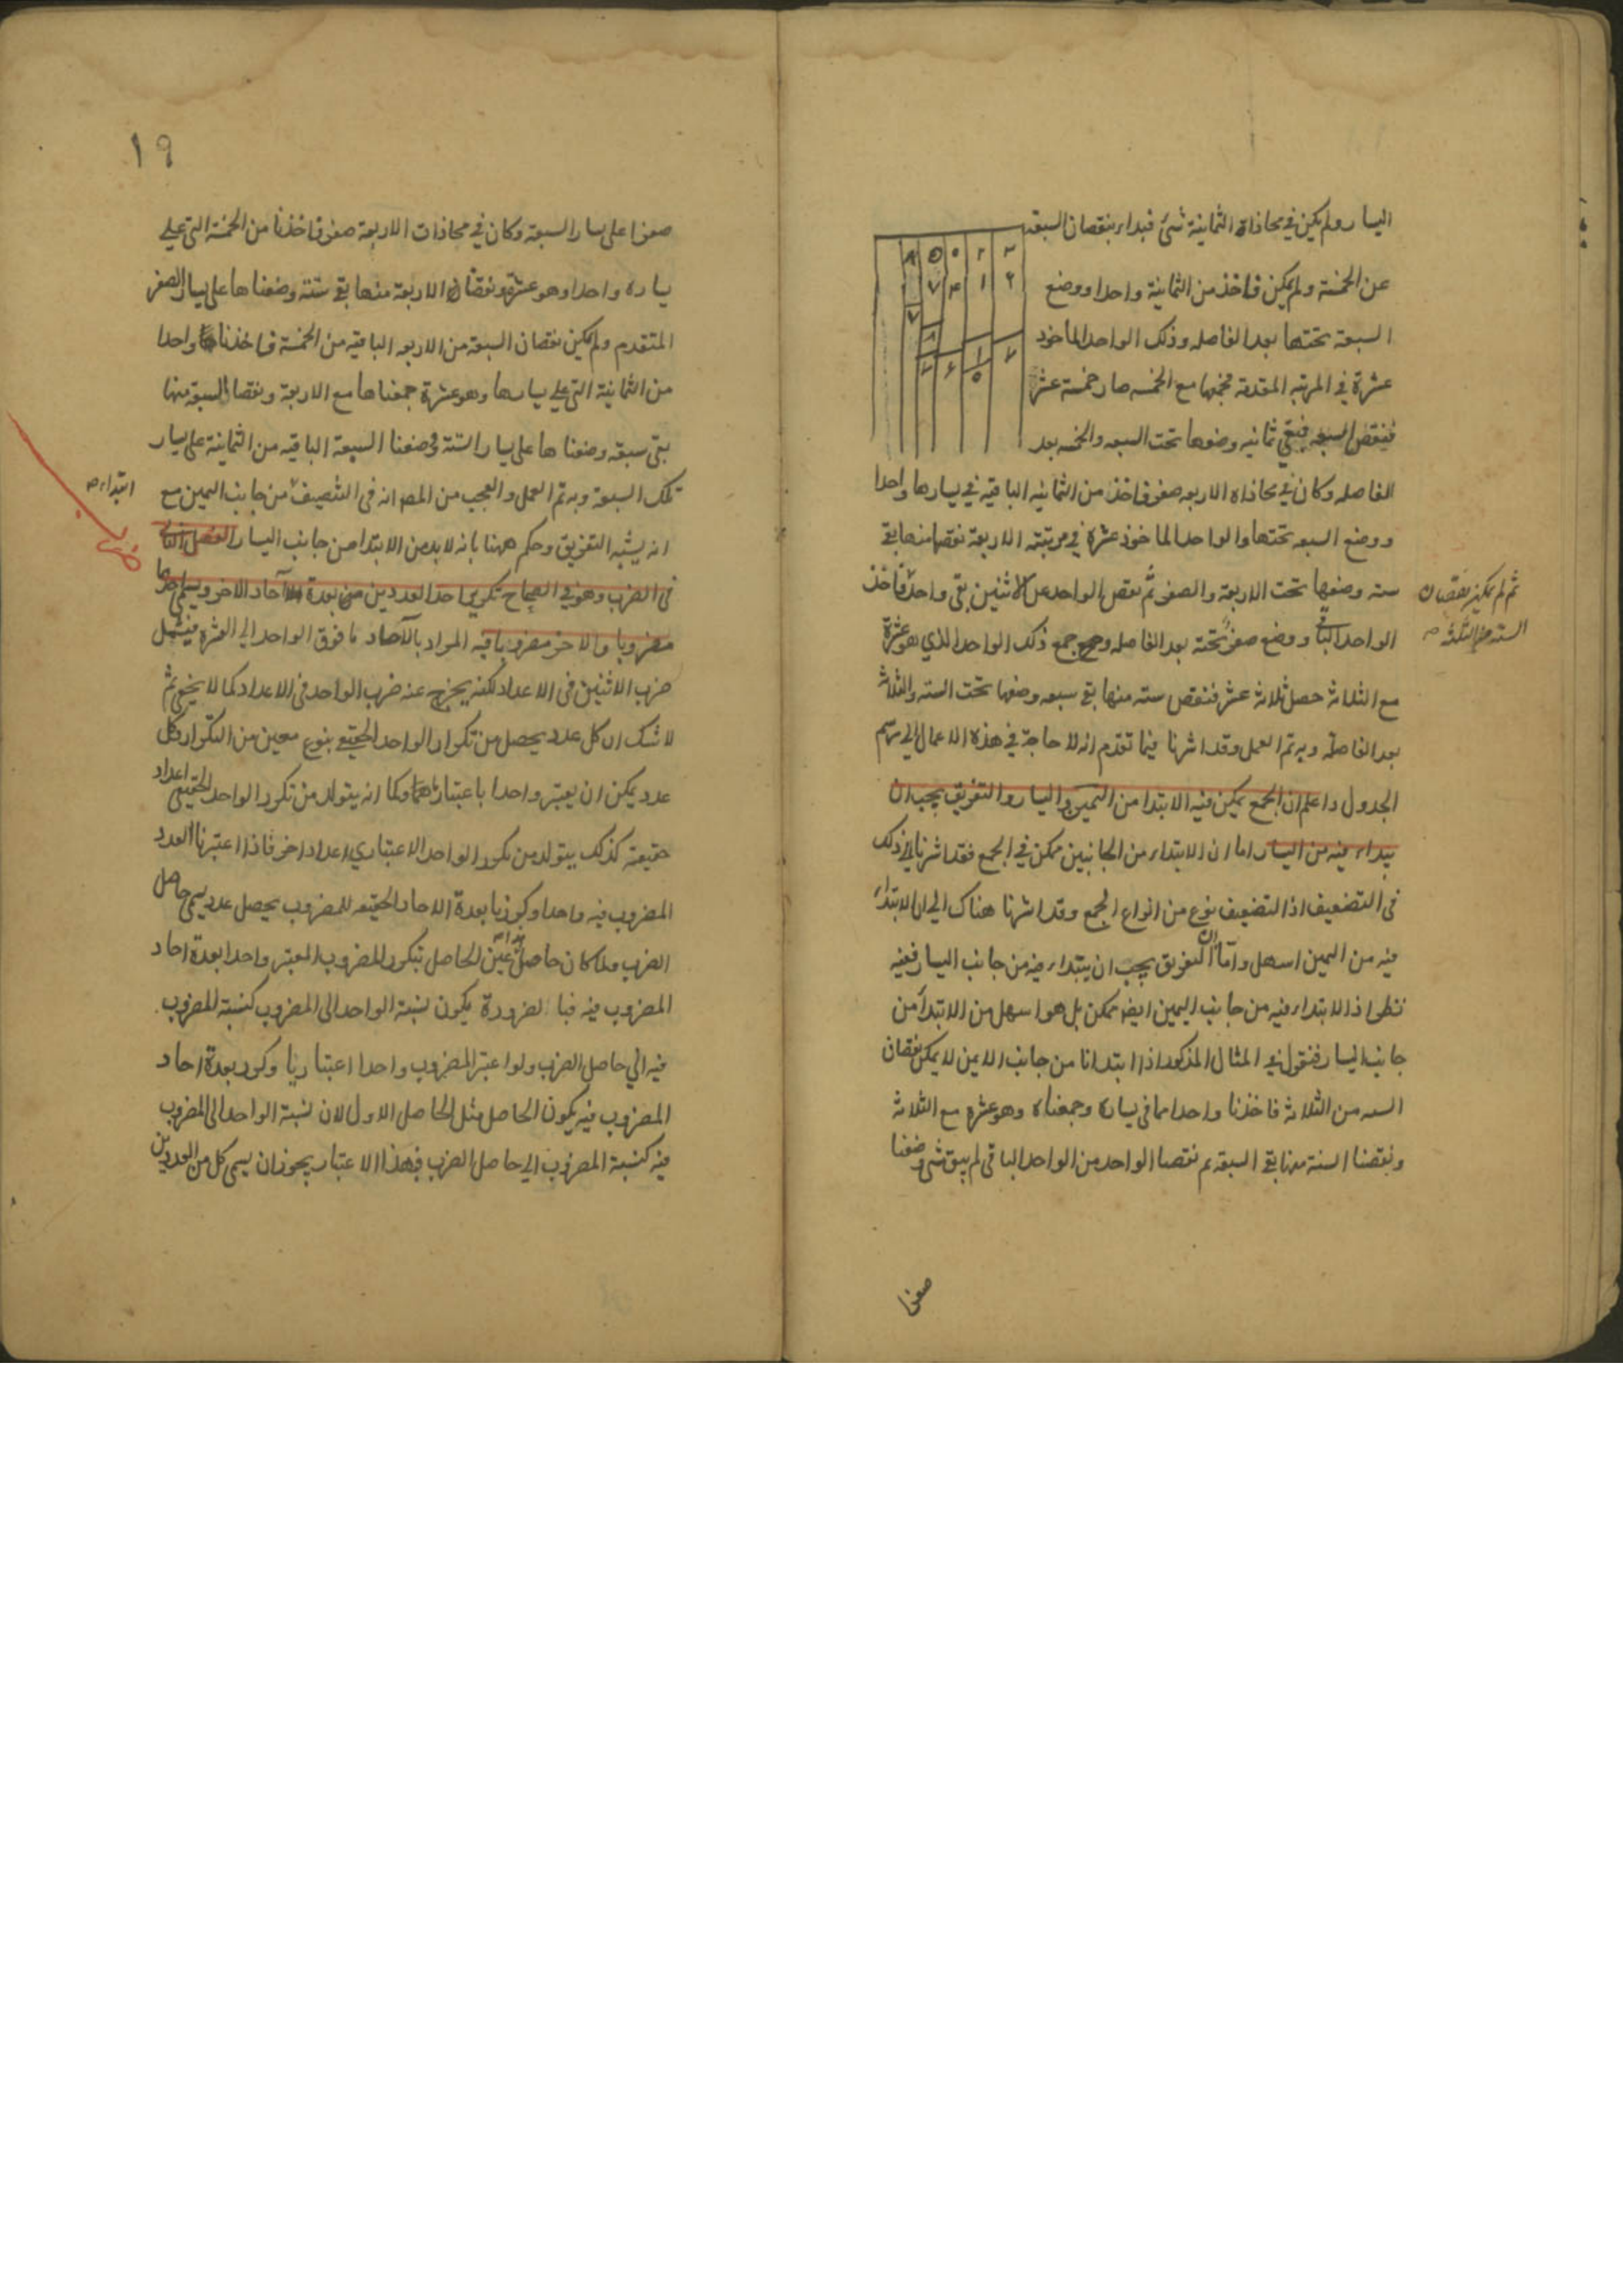 اليسار ولم يكن في محاذاة الثمانية شئ فبداء بنقصان السبعة
عن الخمسة ولم يمكن فاخذ من الثمانية واحدا ووضع
السبعة تحتها بعد الفاصله وذلك الواحد الماخود
عشرة في المرتبه المتقدمة فجمعها مع الخمسه صار خمسة عشر
فنقص السبعه فبقي ثمانيه وضعها تحت السبعه والخمسه بعد
الفاصله وكان في محاذاة الاربعه صفر فاخذ من الثمانيه الباقيه في يسارها واحدا
ووضع السبعه تحتها والواحد الماخوذ عشرة في مرتبته الاربعة نقصها منها بقي
سته وضعها تحت الاربعة والصفر ثم نقص الواحد عن الاثنين بقى واحد فاخذ
ثم لم يمكن نقصان
الستة من الثلثة صح
الواحد الباقي ووضع صفر تحته بعد الفاصله وجمع ذلك الواحد الذي هو عشرة
مع الثلاثة حصل ثلاثة عشر فنقص سته منها بقي سبعه وضعها تحت السته والثلاثة
بعد الفاصلة وبه تم العمل وقد اشرنا فيما تقدم انه لا حاجة في هذه الاعمال الي رسم
الجدول واعلم ان الجمع يمكن فيه الابتدا من اليمين واليسار والتفريق يجب ان
يبداء فيه من اليسار اما ان الابتداء من الجانبين ممكن في الجمع فقد اشرنا الي ذلك
في التضعيف اذ التضعيف نوع من انواع الجمع وقد اشرنا هناك الي ان الابتداء
فيه من اليمين اسهل واما ان التفريق يجب ان يبتداء فيه من جانب اليسار ففيه
نظر اذ الابتداء فيه من جانب اليمين ايضا ممكن بل هو اسهل من الابتدا من
جانب اليسار فنقول في المثال المذكور اذا ابتدانا من جانب الايمن لا يمكن نقصان
السته من الثلاثة فاخذنا واحدا مما في يساره وجمعناه وهو عشره مع الثلاثة
ونقصنا الستة منها بقي السبعة ثم نقصنا الواحد من الواحد الباقي لم يبق شئ وضعنا
صفرا
١٩
صفرا على يسار السبعة وكان في محاذات الاربعة صفر فاخذنا من الخمسة التي على
يساره واحدا وهو عشرة ونقصنا الاربعة منها بقي ستة وضعناها على يسار الصفر
المتقدم ولم يمكن نقصان السبعة من الاربعه الباقيه من الخمسة فاخذنا واحدا
من الثمانية التي على يسارها وهو عشرة جمعناها مع الاربعة ونقصنا السبعة منها
بقى سبعة وضعناها على يسار الستة وضعنا السبعة الباقيه من الثمانية على يسار
تلك السبعة وبه تم العمل والعجب من المصر انه في التنصيف من جانب اليمين مع
ابتداء صح
انه يشبه التفريق وحكم ههنا بانه لا بد من الابتدا من جانب اليسار الفصل الثالث
في الضرب وهو في الصحاح تكرير احد العددين بعدة آحاد الاخر ويسمى احدهما
مضروبا والاخر مضروبا فيه المراد بالآحاد ما فوق الواحد الي العشرة فيشمل
ضرب الاثنين في الاعداد لكنه يخرج عنه ضرب الواحد في الاعداد كما لا يخفى ثم
لا شك ان كل عدد يحصل من تكرار الواحد الحقيقي بنوع معين من التكرار وكل
عدد يمكن ان يعتبر واحدا باعتبار ما وكما انه يتولد من تكرر الواحد الحقيقي اعداد
حقيقية كذلك يتولد من تكرر الواحد الاعتباري اعداد اخر فاذا اعتبرنا العدد
المضروب فيه واحدا وكررنا بعدة الاحاد الحقيقيه للمضروب يحصل عدد يسمى حاصل
الضرب ولما كان حاصل عين الحاصل بتكرر المضروب المعتبر واحدا بعدة احاد
المضروب فيه فبالضرورة يكون نسبة الواحد الى المضروب كنسبة المضروب
فيه الي حاصل الضرب ولو اعتبر المضروب واحدا اعتباريا وكرر بعدة احاد
المضروب فيه يكون الحاصل مثل الحاصل الاول لان نسبة الواحد الى المضروب
فيه كنسبة المضروب الي حاصل الضرب فبهذا الاعتبار يجوز ان يسمى كل من العددين